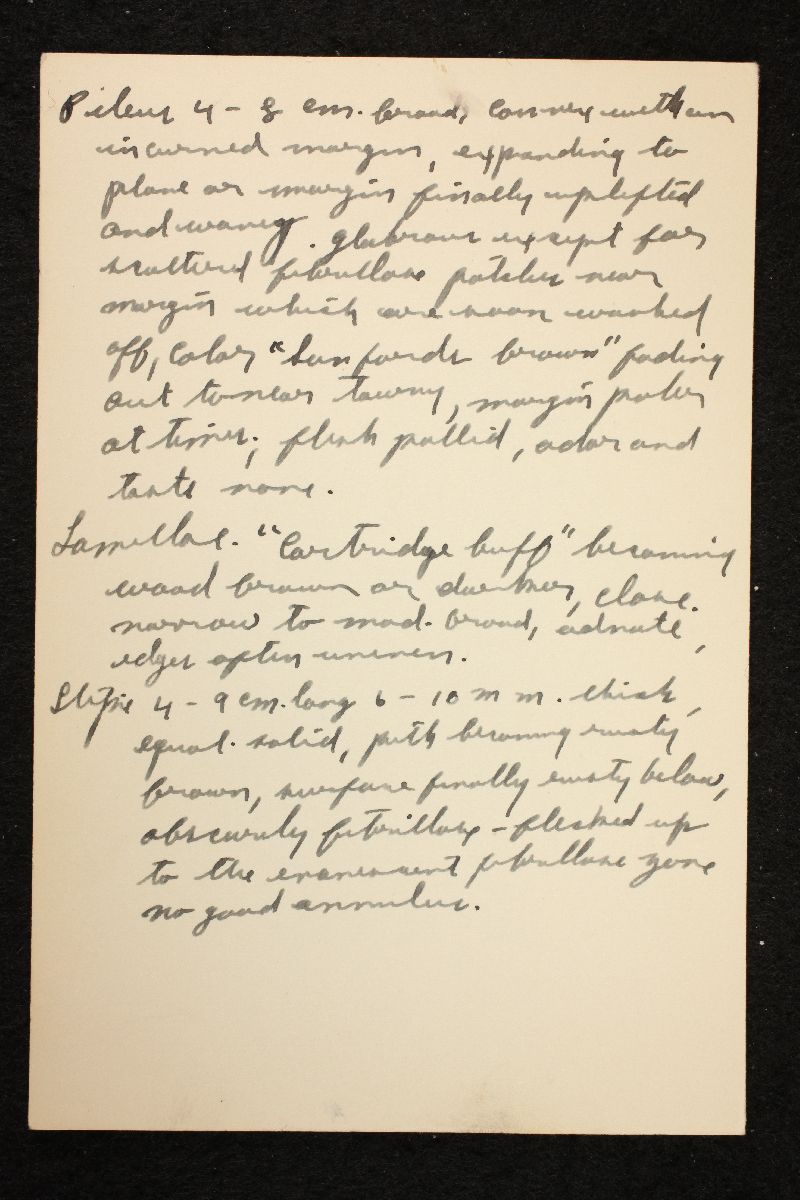 Pileus 4 - 8 cm. broad, convex with an
incurved margin, expanding to
plane or margin finally uplifted
and wavy. glabrous except for
scattered fibrillose patches near
margin which are soon washed
off, color "Sanfords brown" fading
out to near tawny, margin paler
at times; flesh pallid, odor and
taste none.
Lamellae. "Cartridge buff" becoming
wood brown or darker, close.
narrow to mod. broad, adnate,
edges often uneven.
Stipe 4 - 9 cm. long 6 - 10 mm. thick,
equal. solid, pith becoming rusty
brown, surface finally rusty below,
obscurely fibrillose - flecked up
to the evanescent fibrillose zone
no good annulus.